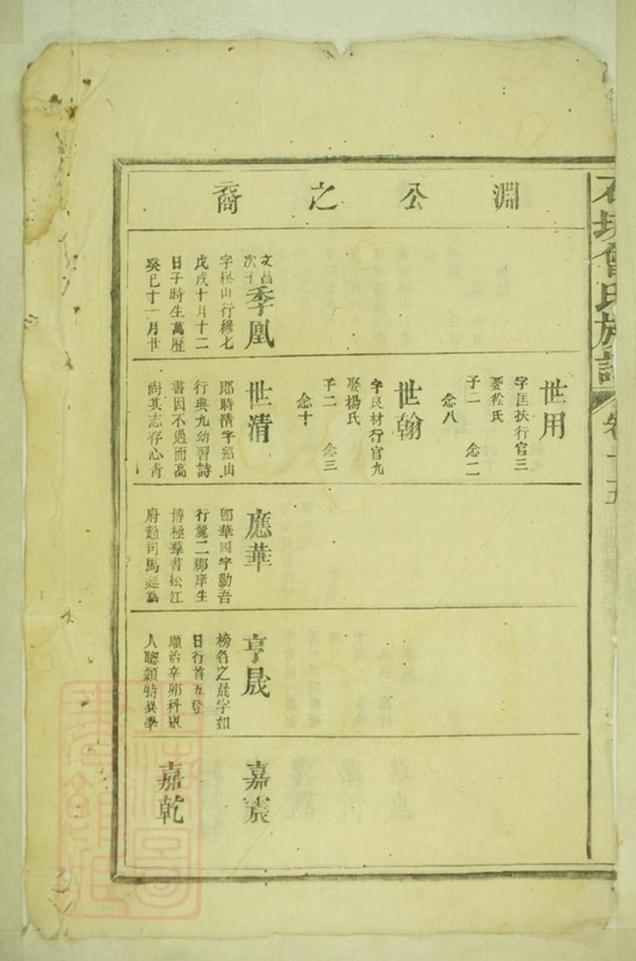 淵公之裔
季凰
字崧山行穆七
戊戌十月十二
日子時生萬歷
癸巳十一月廿
世用
字匡扶行官三
娶徐氏
子二 念二
念八
世翰
字良材行官九
娶楊氏
子二 念三
念十
世清
郎時清字紹山
行典九幼習詩
書因不遇而高
尚其志存心靑
應華
郎華國字勤吾
行麓二郡庠生
博極羣書松江
府趙司馬
亨晟
榜名之晟字如
日行首五登
順治辛卯科
人聰穎特異學
嘉宸
嘉乾
石 曾氏族譜
卷十五